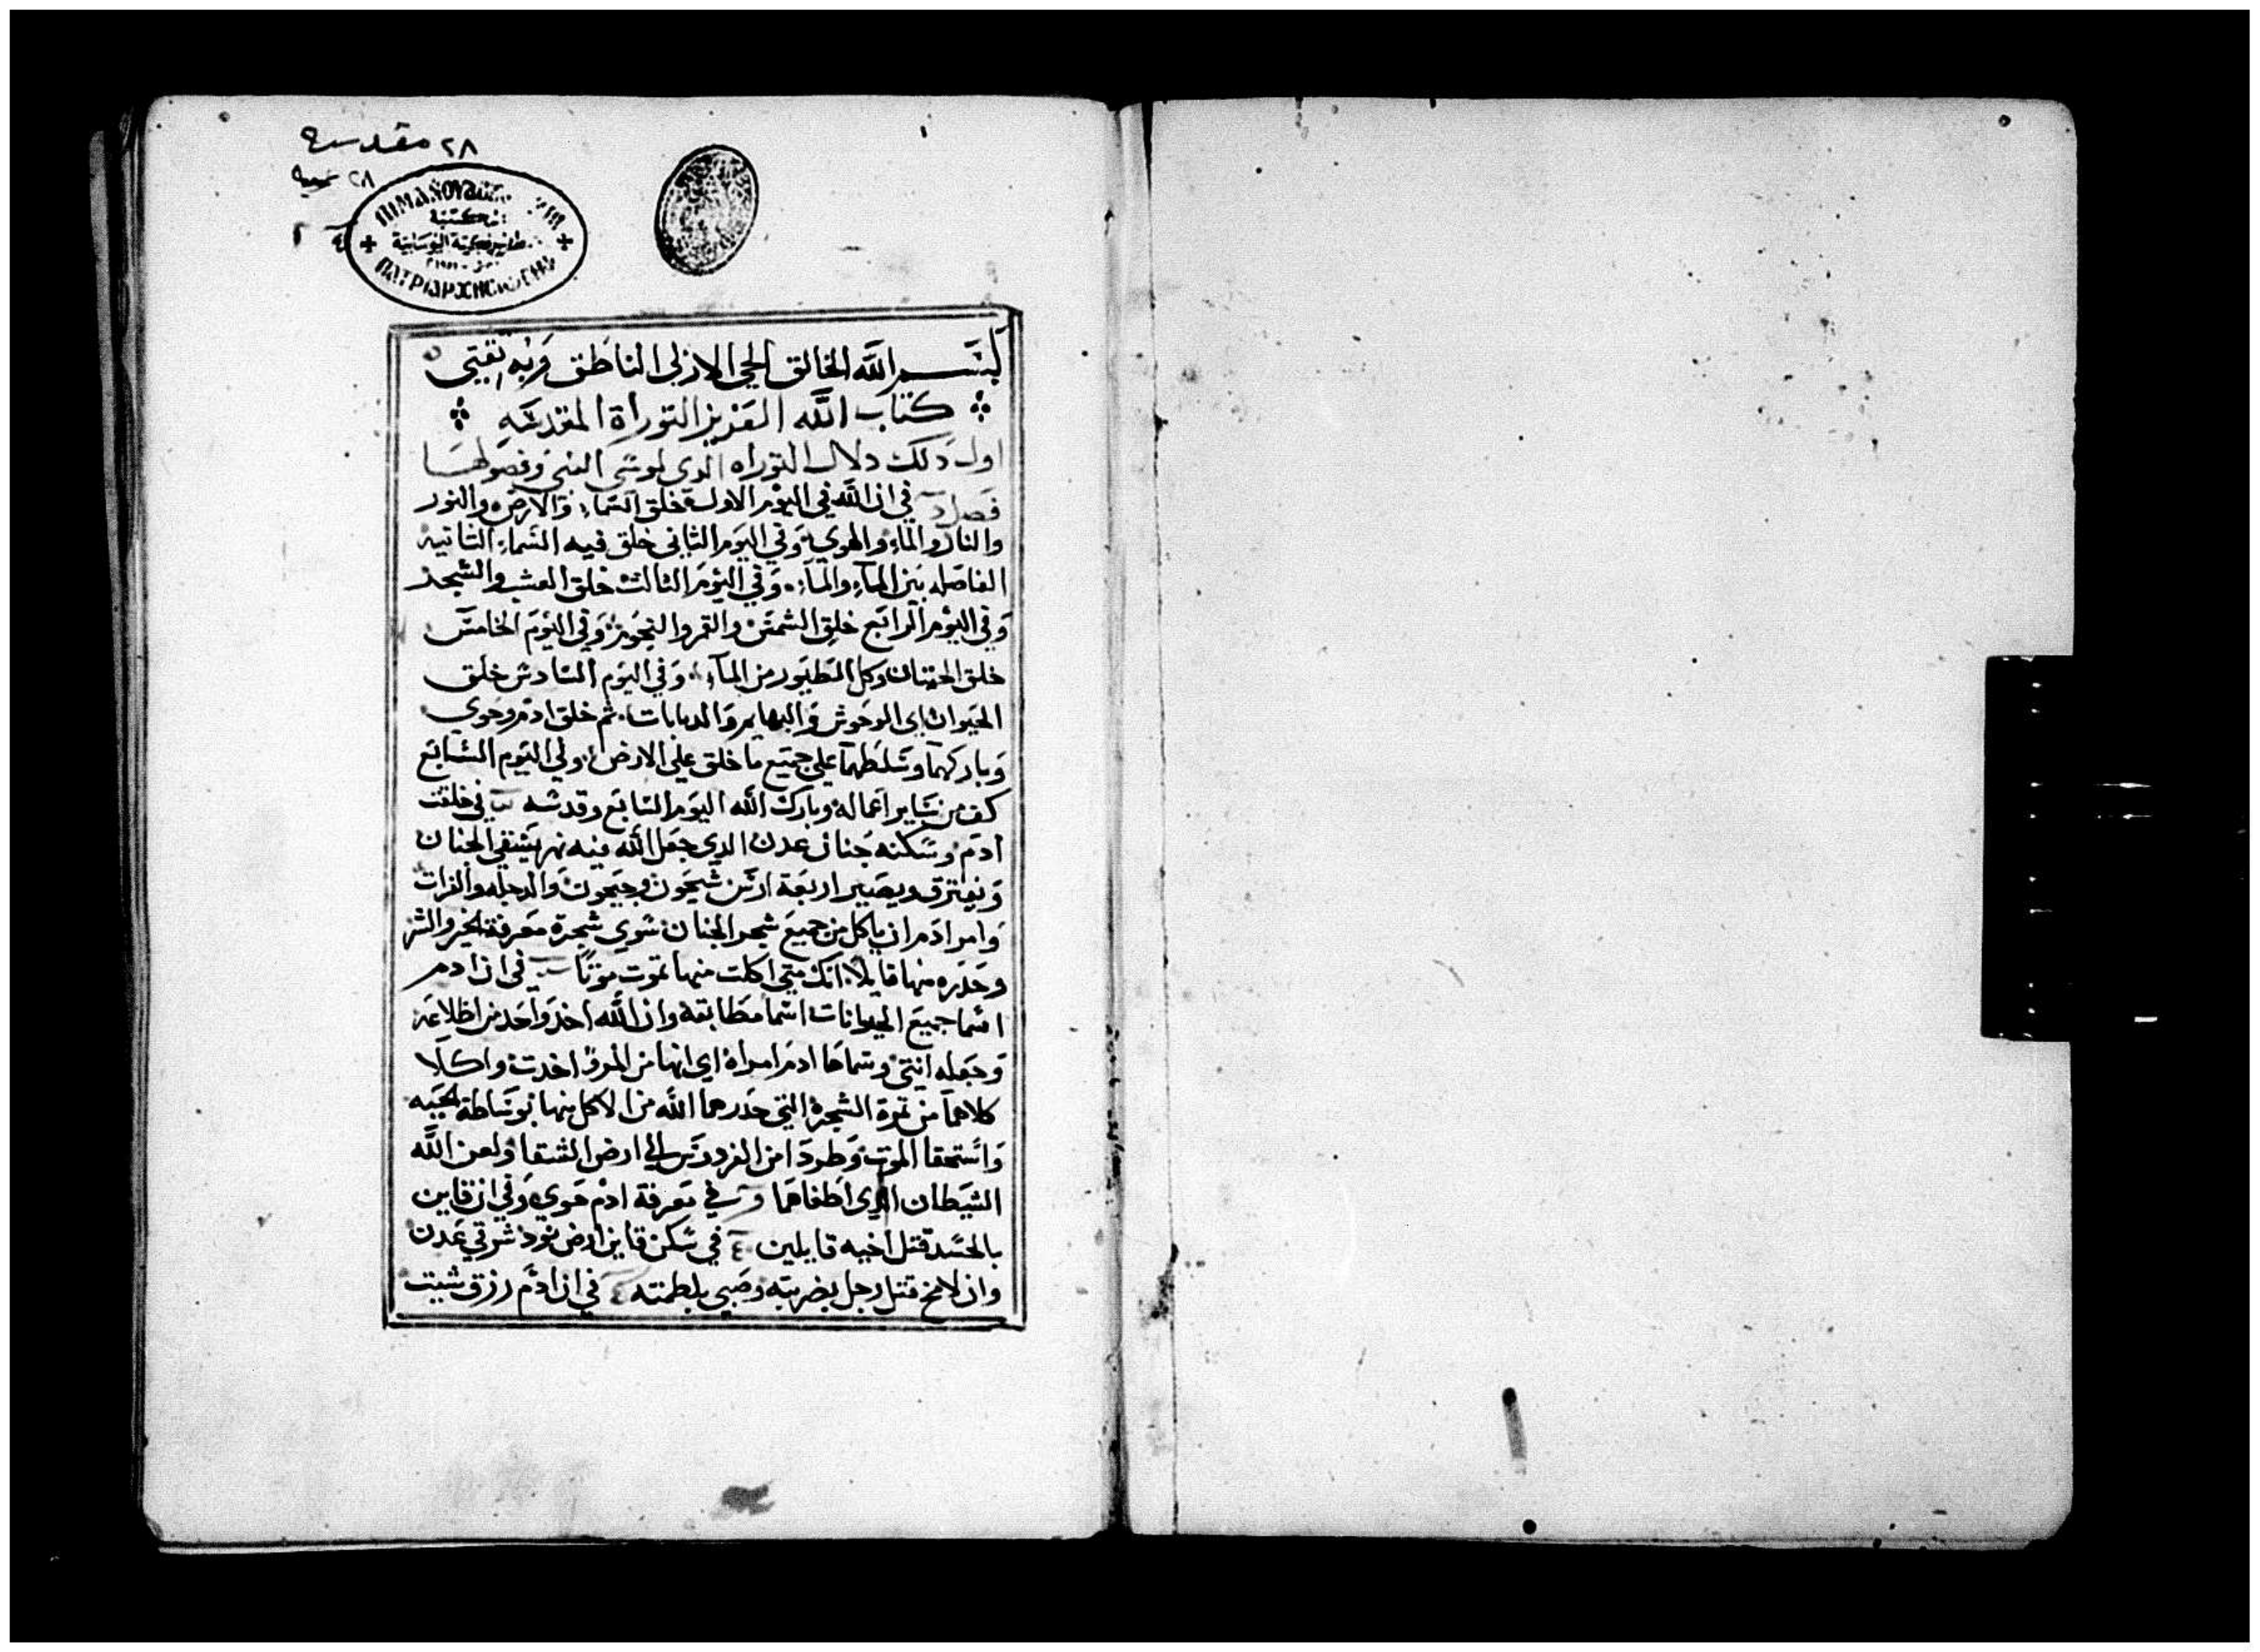 ٢٨ مقدسه
٢٨
مكتبة
ΠΑΤΡΙΑΡΧΗС
بسم الله الخالق الحي الازلي الناطق وبه ثقتي
كتاب الله العزيز التوراة المقدسه
اول دلك دلال التوراه الدي لموسى النبي وفصولها
فصل في ان الله في اليوم الاول خلق السماء والارض والنور
والنار والماء والهوي وفي اليوم الثاني خلق فيه السماء الثانيه
الفاصله بين الماء والماء وفي اليوم الثالث خلق العشب والشجر
وفي اليوم الرابع خلق الشمس والقمر والنجوم وفي اليوم الخامس
خلق الحيتان وكل الطيور من الماء وفي اليوم السادس خلق
الحيوان اي الوحوش والبهايم والدبابات ثم خلق ادم وحوي
وباركهما وسلطهما علي جميع ما خلق علي الارض وفي اليوم السابع
كف من ساير اعماله وبارك الله اليوم السابع وقدسه في خلقت
ادم وسكنه جنان عدن الدي جعل الله فيه نهر يسقي الجنان
ويفترق ويصير اربعة ارس سيحون وجيحون والدجله والفرات
وامر ادم ان ياكل من جميع شجر الجنان سوي شجرة معرفة الخير والشر
وحدره منها قايلا انك متي اكلت منها تموت موتا في ان ادم
اسما جميع الحيوانات اسما مطابقه وان الله اخد واحد من اظلاعه
وجعله انتي وسماها ادم امراه اي انها من المرؤ اخدت واكلا
كلاهما من تمرة الشجرة التي حدرهما الله من الاكل منها بوساطة الحيه
واستحقا الموت وطردا من الفردوس الي ارض الشقا ولعن الله
الشيطان الدي اطغاهما في معرفة ادم حوي وفي ان قاين
بالحسد قتل اخيه قايلين في سكن قاين ارض نود شرقي عدن
وان لامخ قتل رجل بضربته وصبي بلطمته في ان ادم رزق شيت